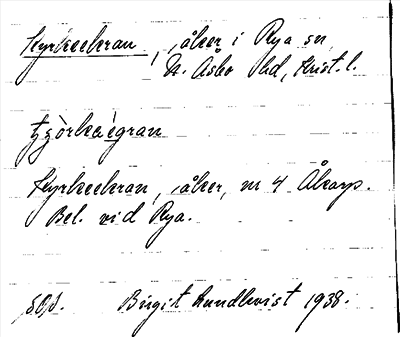 Kyrkeekran, åker i Rya sn,
N. Åsbo hd, Krist. l.
Kyrkeekran, åker, nr 4 Åkarp.
Bel. vid Rya.
Birgit Lundkvist 1938.